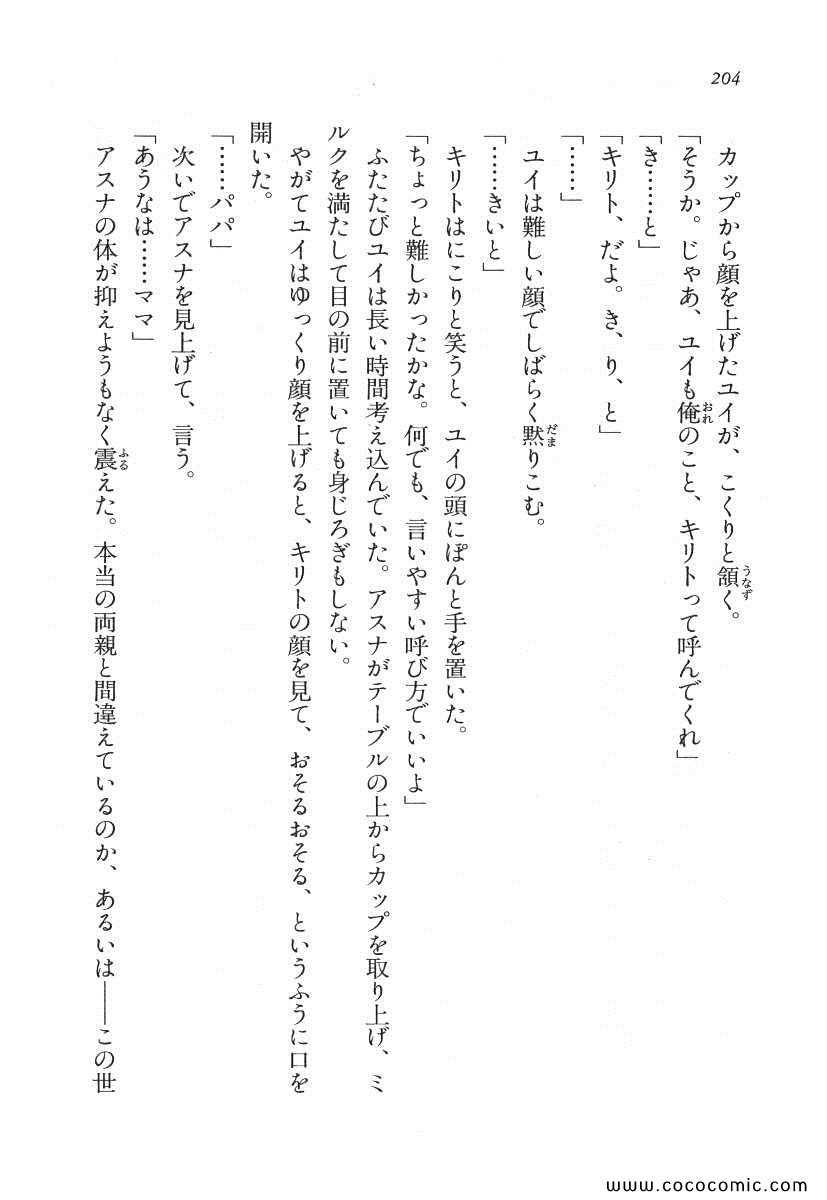 204
カップから顔を上げたユイが、こくりと頷く。
「そうか。じゃあ、ユイも俺のこと、キリトって呼んでくれ」
「き……と」
「キリト、だよ。き、り、と」
「……」
ユイは難しい顔でしばらく黙りこむ。
「……きいと」
キリトはにこりと笑うと、ユイの頭にぽんと手を置いた。
「ちょっと難しかったかな。何でも、言いやすい呼び方でいいよ」
ふたたびユイは長い時間考え込んでいた。アスナがテーブルの上からカップを取り上げ、ミ
ルクを満たして目の前に置いても身じろぎもしない。
やがてユイはゆっくり顔を上げると、キリトの顔を見て、おそるおそる、というふうに口を
開いた。
「……パパ」
次いでアスナを見上げて、言う。
「あうなは……ママ」
アスナの体が抑えようもなく震えた。本当の両親と間違えているのか、あるいは――この世
http://www.cococomic.com/